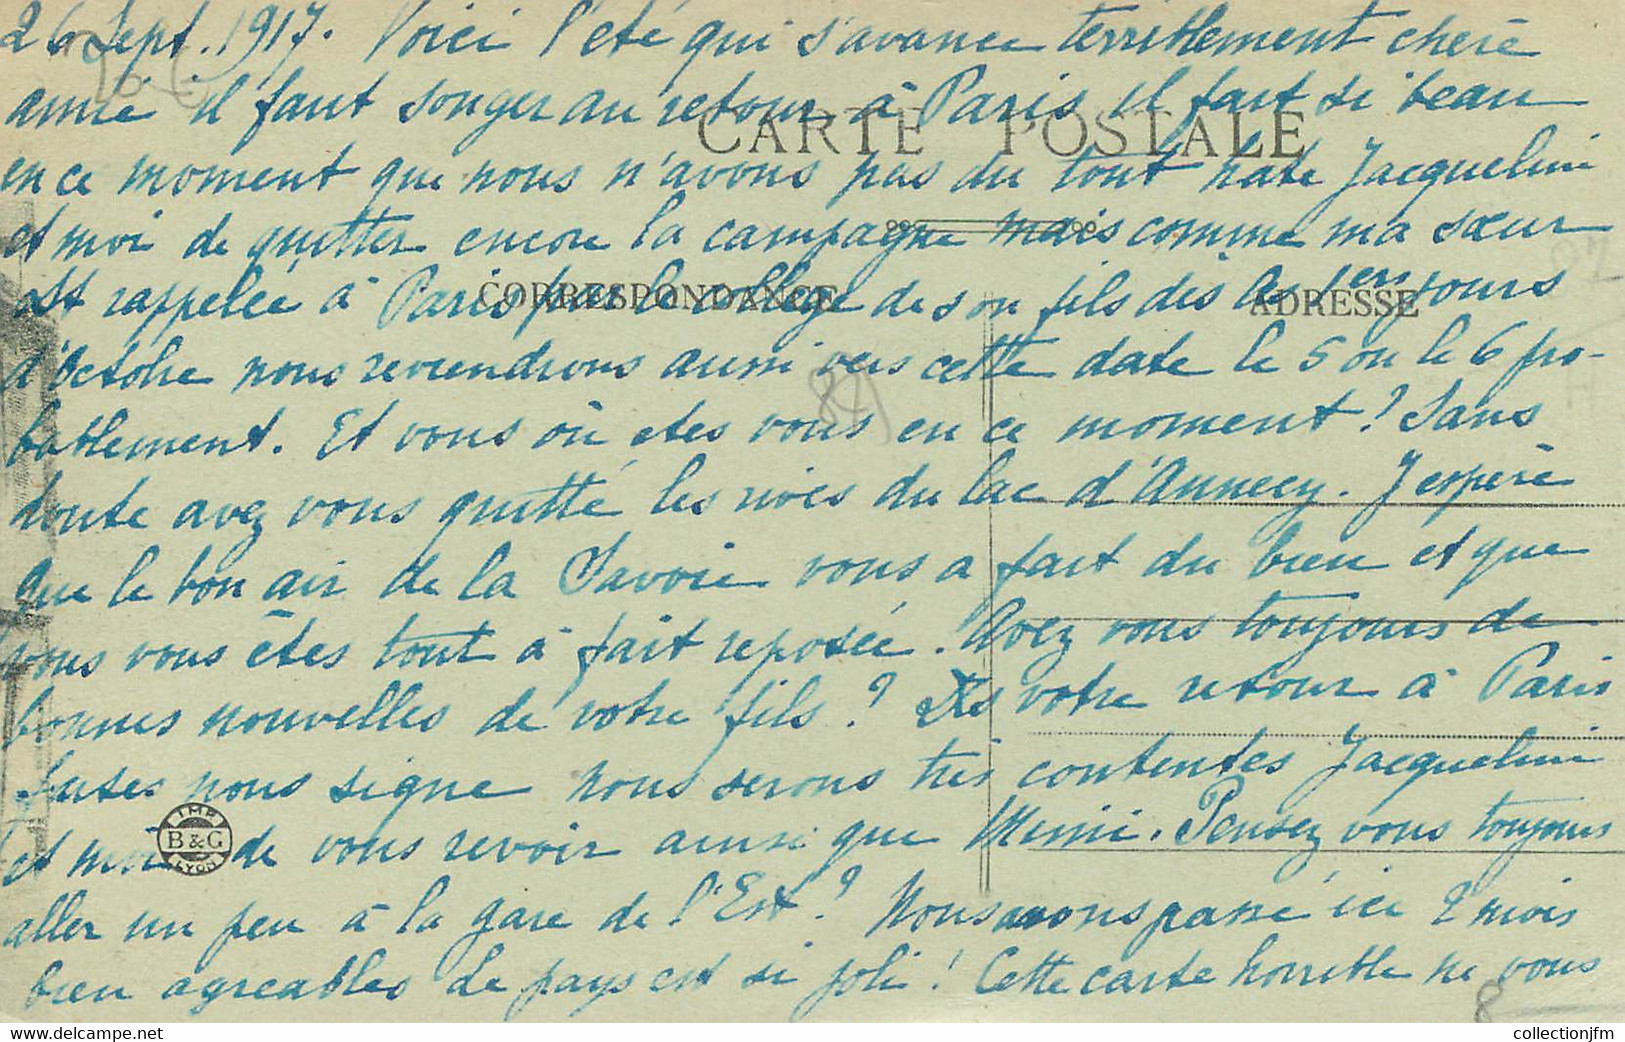 26 Sept. 1917. Voici l'été qui s'avance terriblement chère
amie il faut songer au retour à Paris il fait si beau
CARTE POSTALE
en ce moment que nous n'avons pas du tout hate Jacqueline
et moi de quitter encore la campagne mais comme ma sœur
est rappelée à Paris par le collège de son fils dès les 1ers jours
CORRESPONDANCE
ADRESSE
d'Octobre nous reviendrons aussi vers cette date le 5 ou le 6 pro-
bablement. Et vous où etes vous en ce moment? Sans
doute avez vous quitté les rives du lac d'Annecy. J'espère
que le bon air de la Savoie vous a fait du bien et que
vous vous êtes tout à fait reposée. Avez vous toujours de
bonnes nouvelles de votre fils? Dès votre retour à Paris
faites nous signe nous serons très contentes Jacqueline
et moi de vous revoir ainsi que Mimi. Pensez vous toujours
IMP
B & G
LYON
aller un peu à la gare de l'Est? Nous avons passé ici 2 mois
bien agreables le pays est si joli! Cette carte horrible ne vous
8
collectionjfm